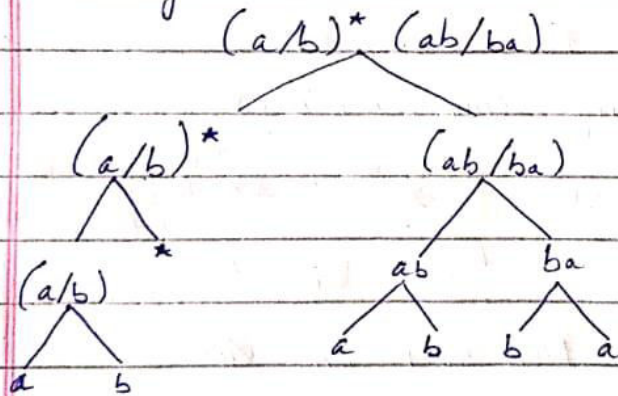 (a/b)* (ab/ba)
(a/b)* (ab/ba)
*
ab ba
(a/b)
a b b a
a b